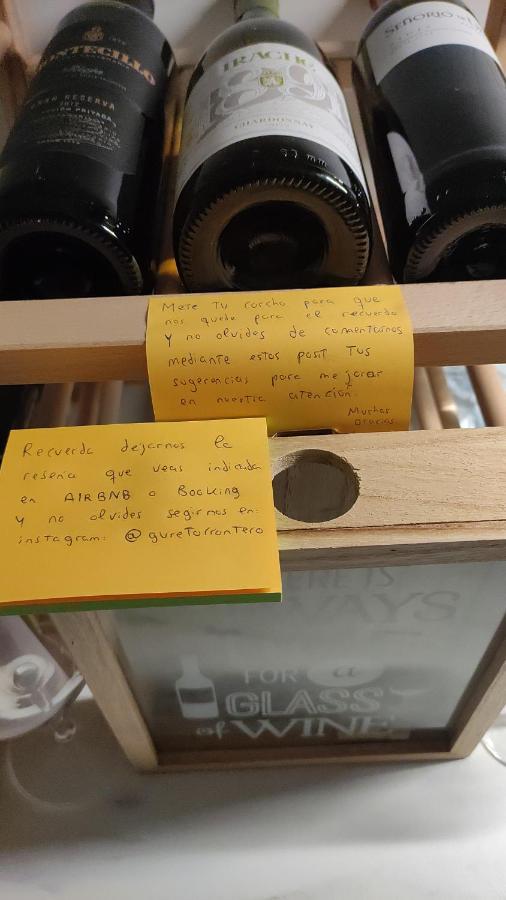 MONTECILLO
Rioja
GRAN RESERVA
2012
IRACHE
1891
CHARDONNAY
SEÑORIO
Mete Tu corcho para que
nos quede para el recuerdo
y no olvides de comentarnos
mediante estos posit Tus
sugerencias para mejorar
en nuestra atención.
Muchas
Gracias
Recuerda dejarnos la
reseña que veas indicada
en AIRBNB o Booking
y no olvides segirnos en:
instagram: @gureTorronTero
IS
WAYS
FOR a
GLASS
of WINE